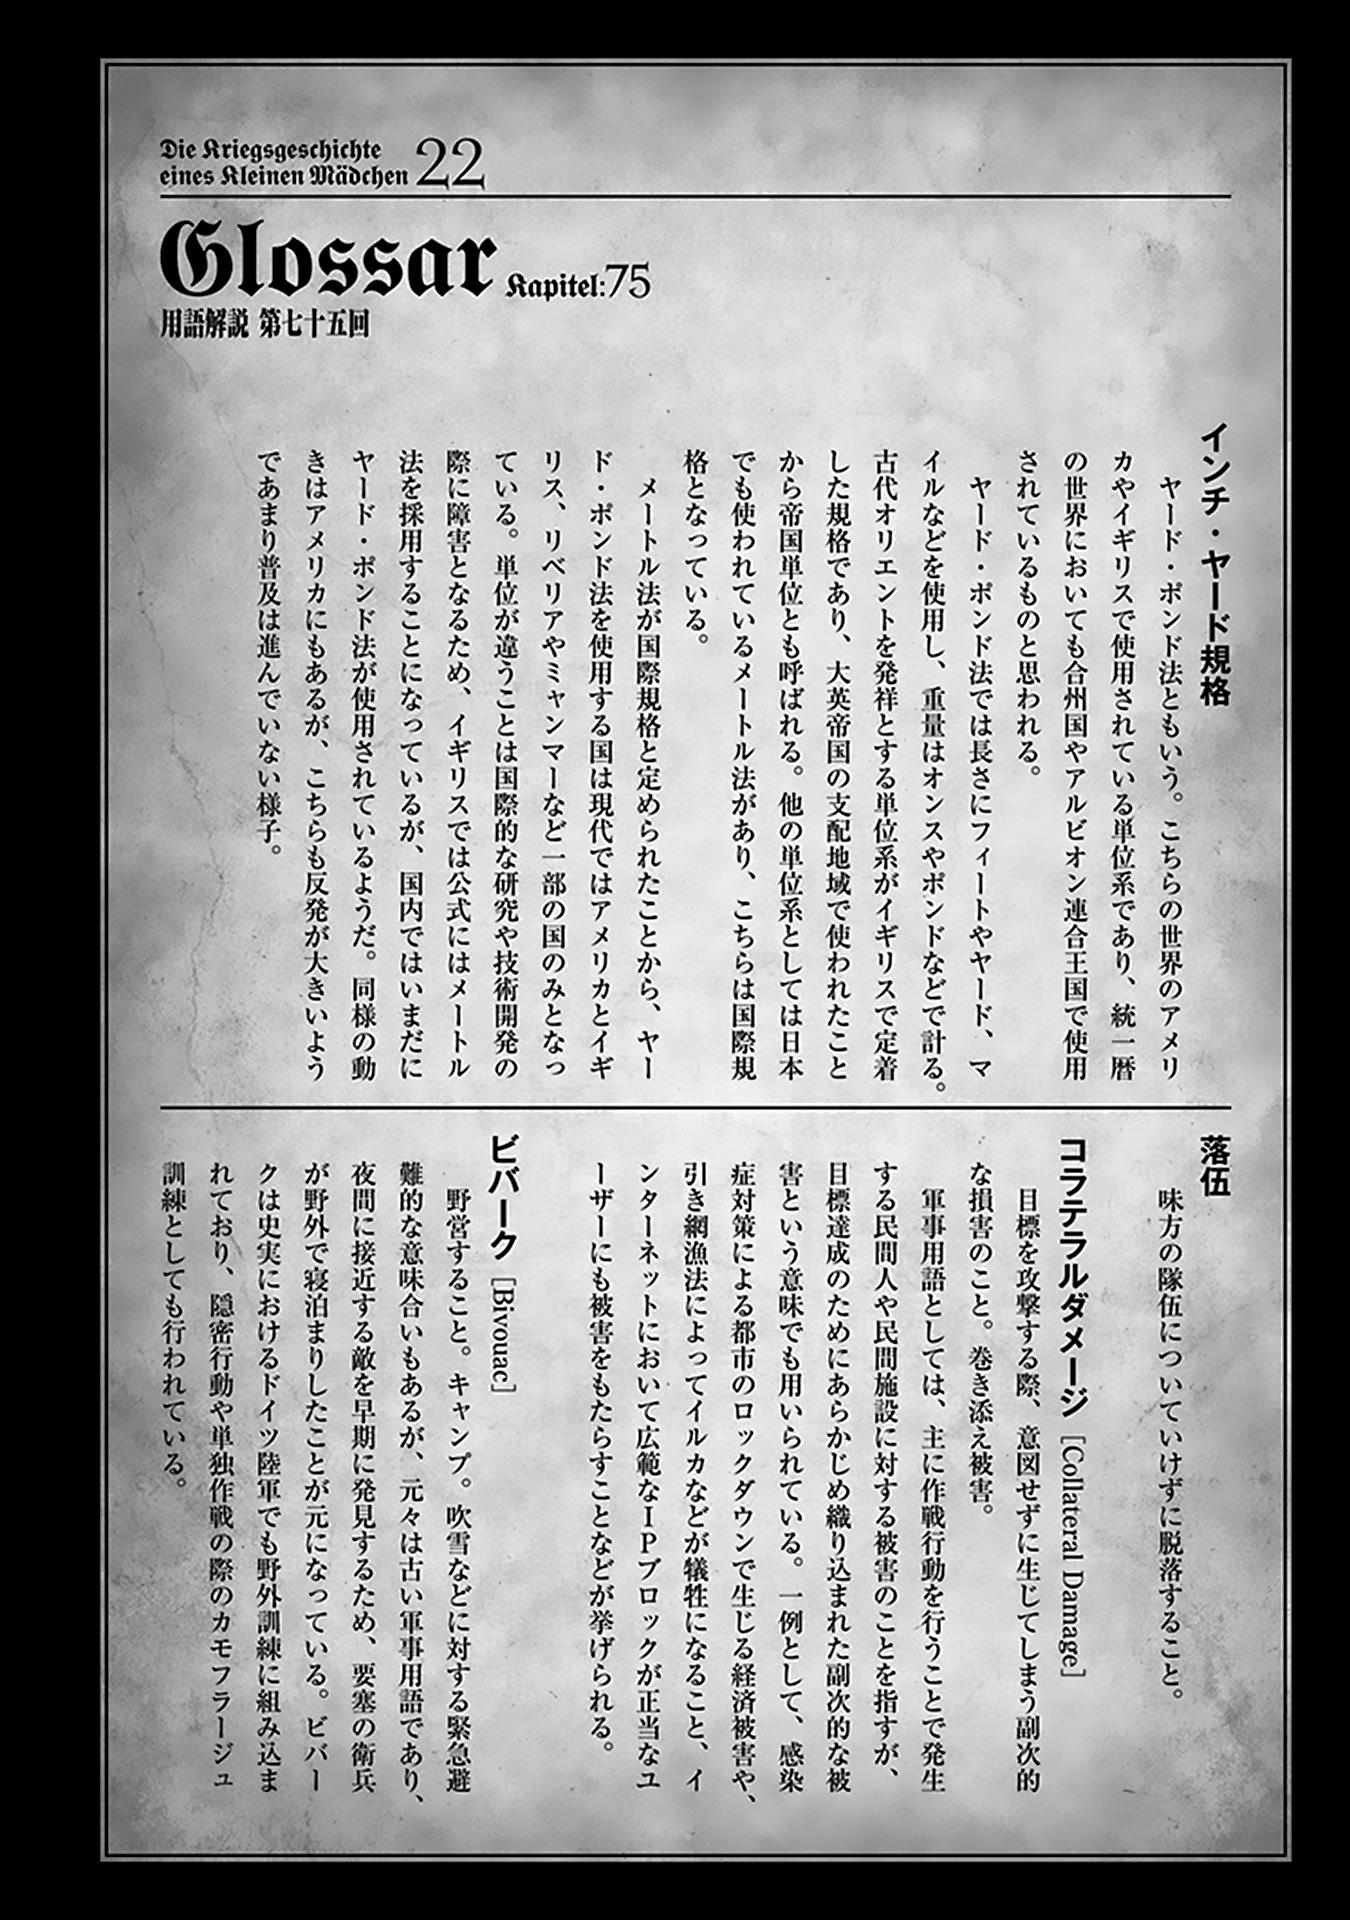 Die Kriegsgeschichte
eines Kleinen Mädchen 22
Glossar Kapitel:75
用語解説 第七十五回
インチ・ヤード規格
ヤード・ポンド法ともいう。こちらの世界のアメリ
カやイギリスで使用されている単位系であり、統一暦
の世界においても合州国やアルビオン連合王国で使用
されているものと思われる。
ヤード・ポンド法では長さにフィートやヤード、マ
イルなどを使用し、重量はオンスやポンドなどで計る。
古代オリエントを発祥とする単位系がイギリスで定着
した規格であり、大英帝国の支配地域で使われたこと
から帝国単位とも呼ばれる。他の単位系としては日本
でも使われているメートル法があり、こちらは国際規
格となっている。
メートル法が国際規格と定められたことから、ヤー
ド・ポンド法を使用する国は現代ではアメリカとイギ
リス、リベリアやミャンマーなど一部の国のみとなっ
ている。単位が違うことは国際的な研究や技術開発の
際に障害となるため、イギリスでは公式にはメートル
法を採用することになっているが、国内ではいまだに
ヤード・ポンド法が使用されているようだ。同様の動
きはアメリカにもあるが、こちらも反発が大きいよう
であまり普及は進んでいない様子。
落伍
味方の隊伍についていけずに脱落すること。
コラテラルダメージ [Collateral Damage]
目標を攻撃する際、意図せずに生じてしまう副次的
な損害のこと。巻き添え被害。
軍事用語としては、主に作戦行動を行うことで発生
する民間人や民間施設に対する被害のことを指すが、
目標達成のためにあらかじめ織り込まれた副次的な被
害という意味でも用いられている。一例として、感染
症対策による都市のロックダウンで生じる経済被害や、
引き網漁法によってイルカなどが犠牲になること、イ
ンターネットにおいて広範なIPブロックが正当なユ
ーザーにも被害をもたらすことなどが挙げられる。
ビバーク [Bivouac]
野営すること。キャンプ。吹雪などに対する緊急避
難的な意味合いもあるが、元々は古い軍事用語であり、
夜間に接近する敵を早期に発見するため、要塞の衛兵
が野外で寝泊まりしたことが元になっている。ビバー
クは史実におけるドイツ陸軍でも野外訓練に組み込ま
れており、隠密行動や単独作戦の際のカモフラージュ
訓練としても行われている。